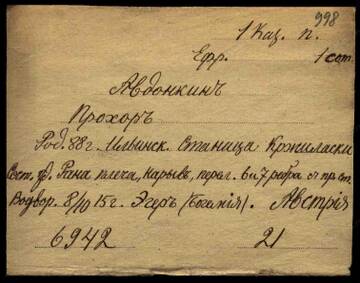 998
1 Каз. п.
Ефр. 1 сот.
Авдонкинъ
Прохоръ
Род. 88 г. Ильинск. Станица
Рана плеча, нарывъ, перел. 6 и 7 ребра
Водвор. 8/10 15 г. Эгеръ (Богемія). Австрія
6942 21